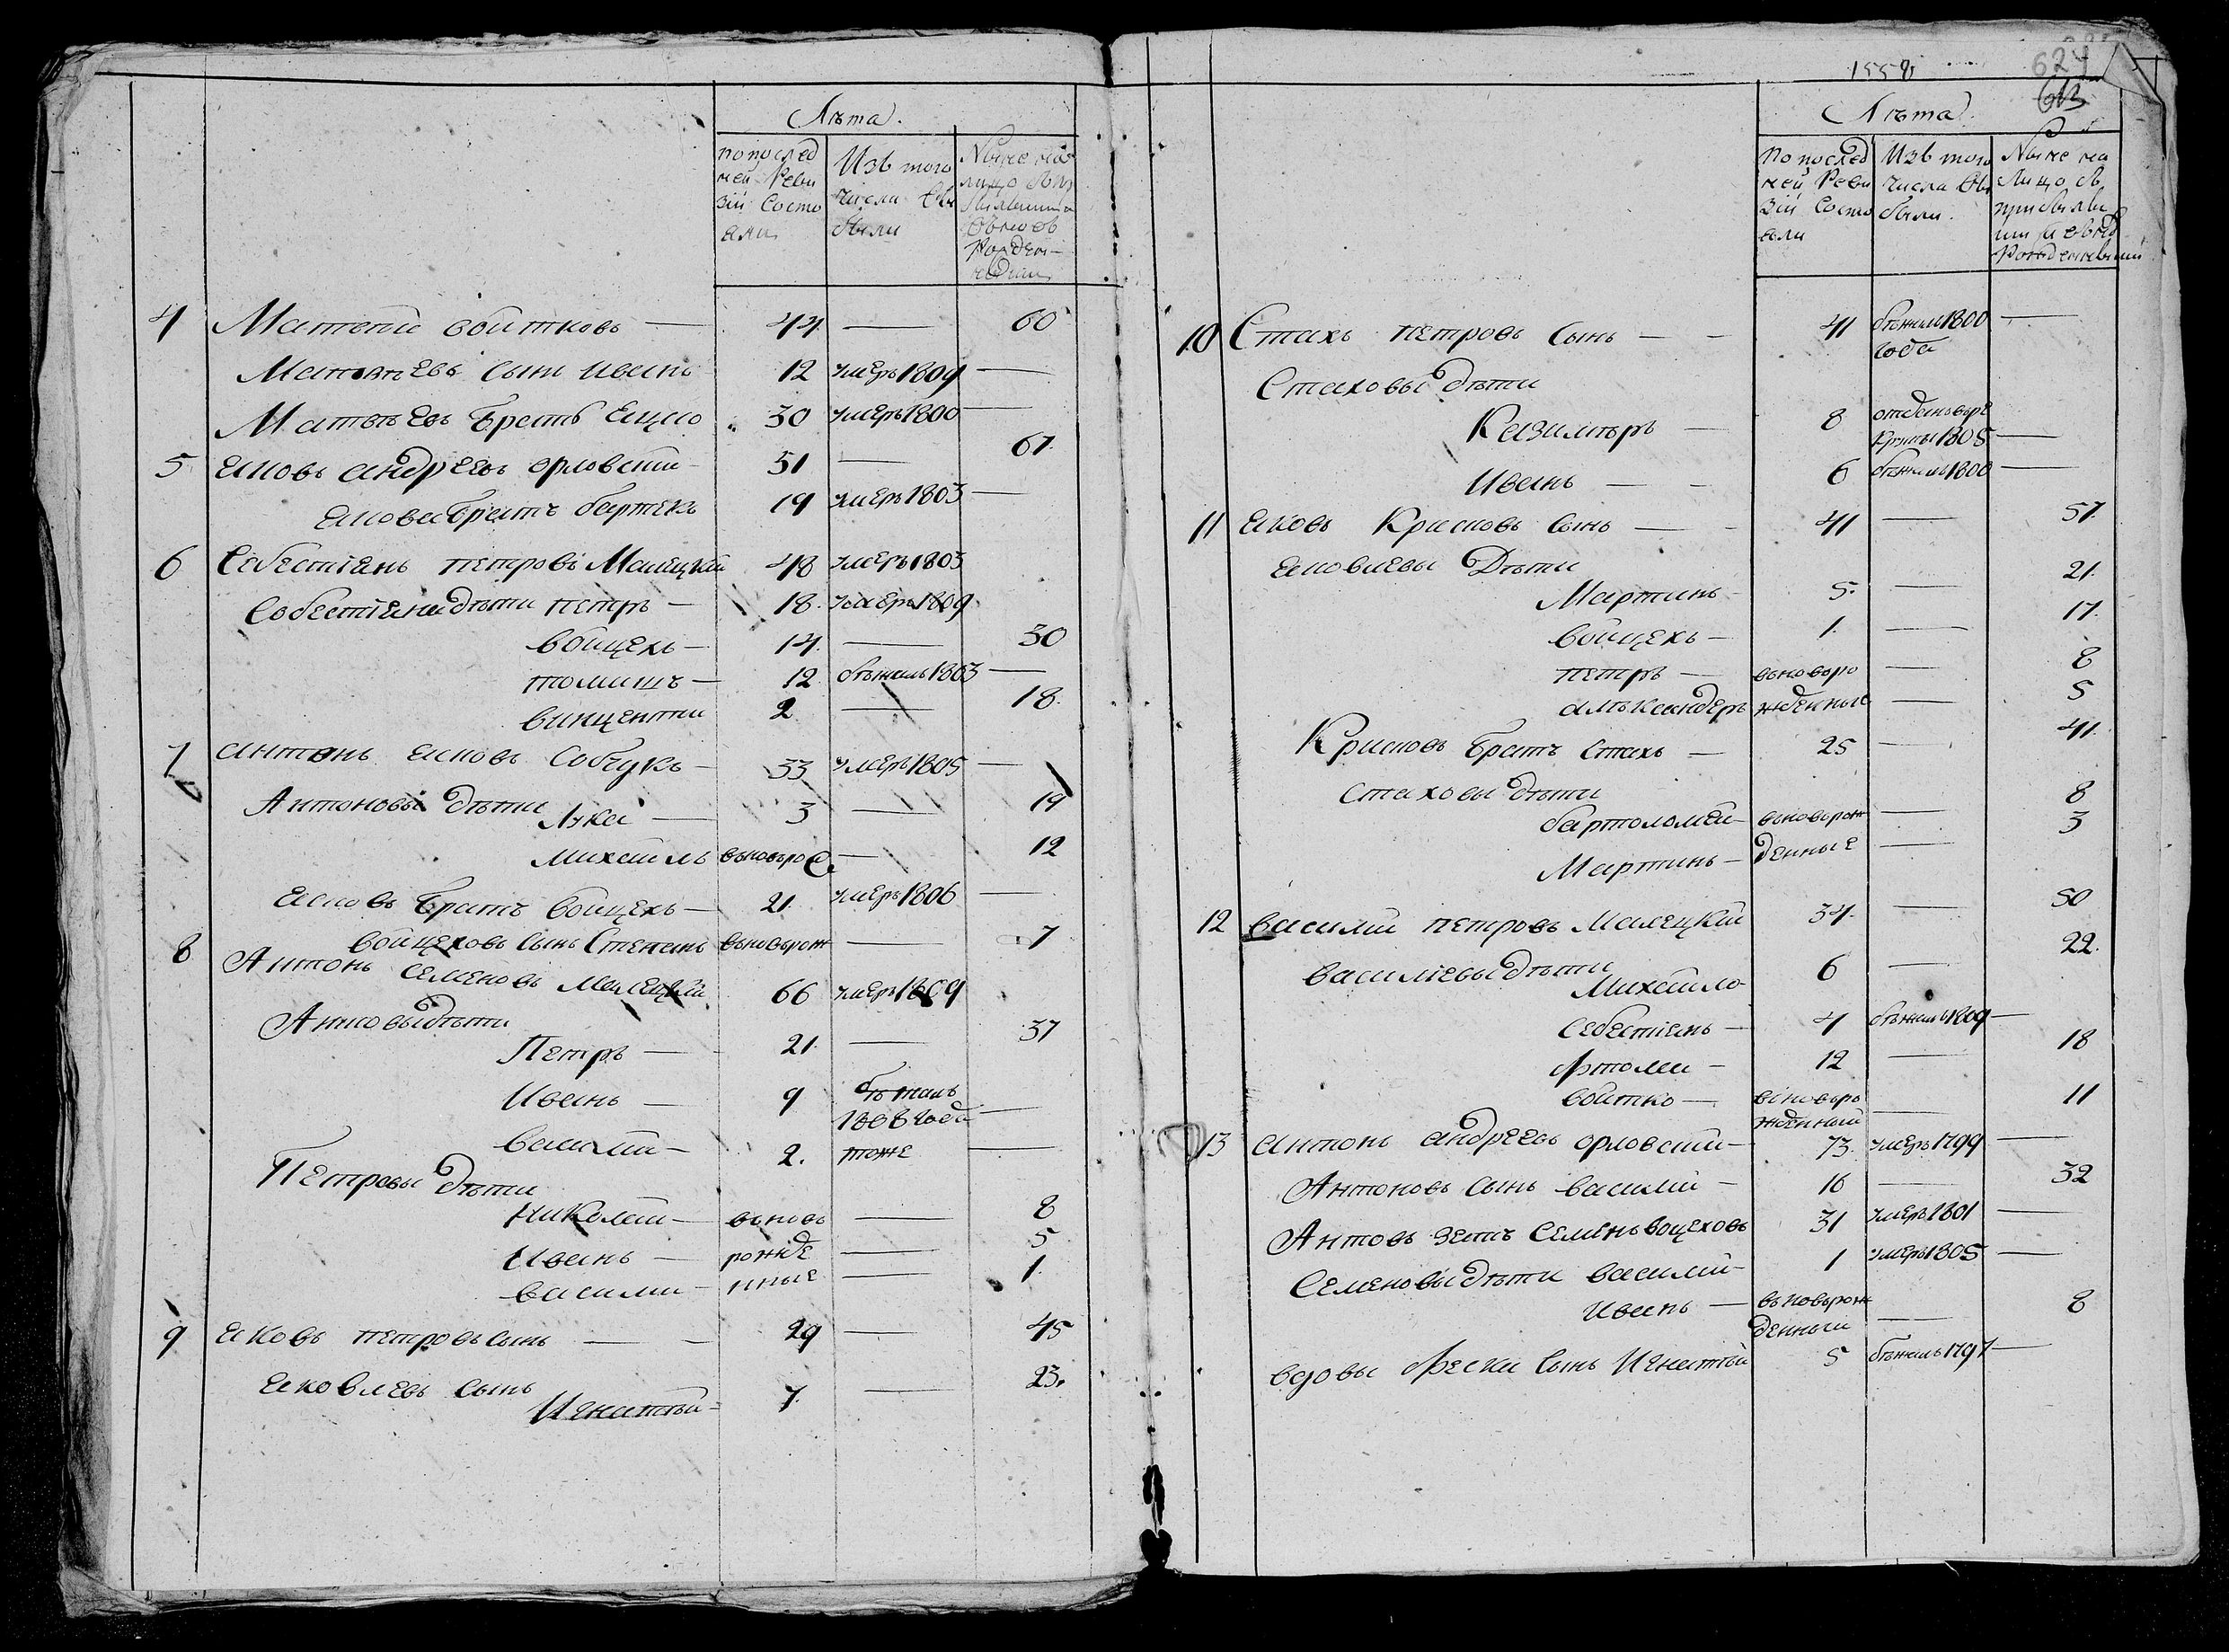 Лѣта.
по послед
ней Реви
зіи Состо
яли
Изъ того
числа вы
были
Ныне на
лицо
4 Матвѣй войтковъ — 44 — 60
Матвѣевъ Сынъ иванъ 12 умеръ 1809 —
Матвѣевъ братъ Яцко 30 умеръ 1800 —
5 яковъ андреевъ орловскій 51 — 67
якова братъ бартекъ 19 умеръ 1803 —
6 Себестіянъ петровъ Малецкій 48 умеръ 1803
Собестіяна дѣти петръ — 18. умеръ 1809
войцехъ — 14. — 30
томашъ — 12 бѣжалъ 1803 —
винцентий 2 — 18.
7 антонъ яковъ Собчукъ — 33 умеръ 1805 —
Антоновы дѣти Лука — 3 — 19
михаилъ вьновьро — 12
яковъ братъ войцехъ — 21. умеръ 1806 —
войцеховъ сынъ Степанъ вьновьрож — 7
8 Антонъ Семеновъ Малецкій 66 умеръ 1809
Антовы дѣти
Петръ — 21. — 37
Иванъ — 9 бѣжалъ
1808 года —
василій — 2. тоже —
Петровы дѣти
Николай — вьновь — 8
Иванъ — рожде — 5
василий — нные — 1.
9 яковъ петровъ сынъ — 29 — 45
яковлевъ сынъ
Игнатій — 7. — 23.
1558
624
Лѣта
По послед
ней Реви
зіи Состо
яли
Изъ того
числа вы
были.
Ныне на
лицо съ
прибылы
ми и вьнов
Рожденными
10 Стахъ петровъ Сынъ — 41 бѣжалъ 1800 —
года
Стаховы дѣти
Казимѣръ — 8 отданъ вре
круты 1805 —
Иванъ — 6 бѣжалъ 1800 —
11 яковъ Крисковъ Сынъ — 41 — 57.
яковлевы Дѣти
Мартинъ 5. — 21.
войцехъ — 1. — 17.
петръ — вьновьро — 8
алѣксандеръ жденные — 5
Крисковъ братъ Стахъ — 25 — 41.
Стаховы дѣти
бартоломей — вьновьрож — 8
Мартинъ — денные — 3
12 василій петровъ Малецкий 34. — 50
василіевы дѣти
Михайло 6 — 22.
Себестіянъ — 4 бѣжалъ 1809 —
12 — 18
войтко — вьновьро
жденный — 11
13 антонъ андреевъ орловскій — 73. умеръ 1799 —
Антоновъ Сынъ василій — 16 — 32
Антовъ зять Семенъ воцеховъ 31 умеръ 1801 —
Семеновы дѣти василий 1 умеръ 1805 —
иванъ — вьновьрож
денный — 8
вдовы Фески Сынъ Игнатій 5 бѣжалъ 1797 —